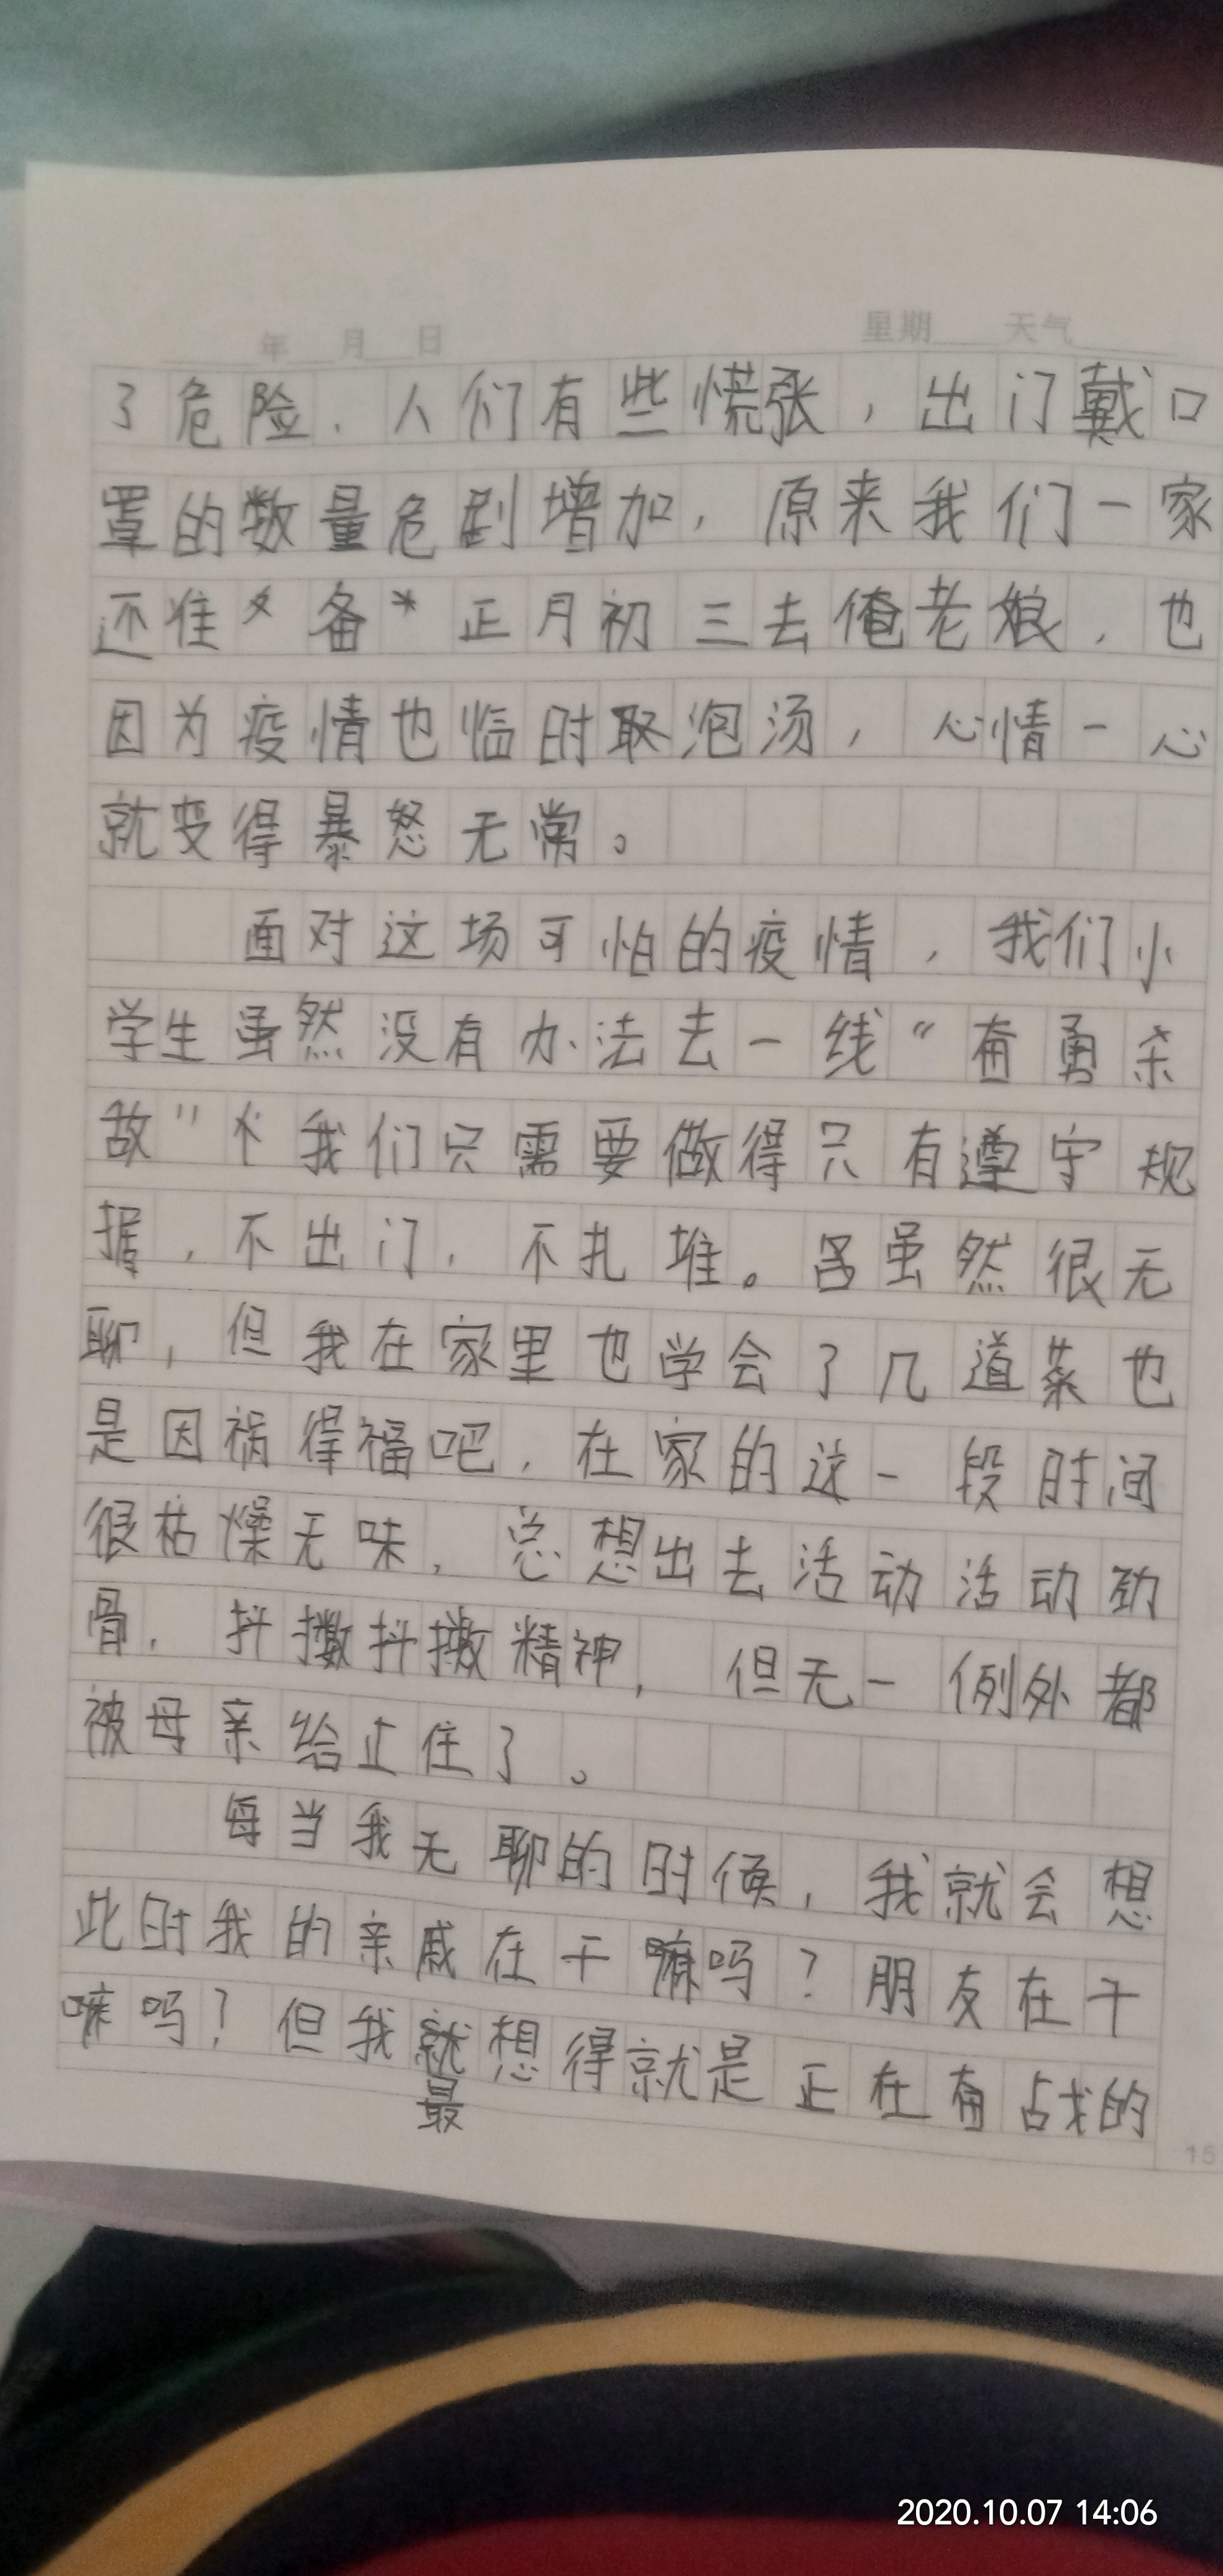 年 月 日 星期 天气
了危险，人们有些慌张，出门戴口
罩的数量危剧增加，原来我们一家
还准备正月初三去俺老娘，也
因为疫情也临时取泡汤，心情一心
就变得暴怒无常。
面对这场可怕的疫情，我们小
学生虽然没有办法去一线“奋勇杀
敌”我们只需要做得只有遵守规
据，不出门，不扎堆。虽然很无
聊，但我在家里也学会了几道菜也
是因祸得福吧，在家的这一段时间
很枯燥无味，总想出去活动活动劲
骨，抖擞抖擞精神，但无一例外都
被母亲给止住了。
每当我无聊的时候，我就会想
此时我的亲戚在干嘛吗？朋友在干
嘛吗？但我就想得就是正在奋战的
最
15
2020.10.07 14:06